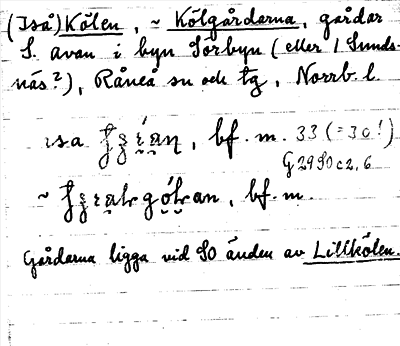 (Iså) Kölen, ~ Kölgårdarna, gårdar
S. avan i byn Sörbyn (eller i Sunds-
näs?), Råneå sn och tg, Norrb. l.
isa, bf. m. 33 (=30!)
G29SOc2,6
~, bf. m.
Gårdarna ligga vid SO änden av Lillkölen.